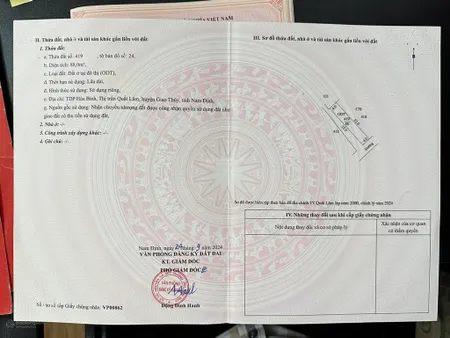 II. Thửa đất, nhà ở và tài sản khác gắn liền với đất
1. Thửa đất:
a. Thửa đất số: 419 , tờ bản đồ số: 24,
b. Diện tích: 88,0m²,
c. Loại đất: Đất ở tại đô thị (ODT),
d. Thời hạn sử dụng: Lâu dài,
đ. Hình thức sử dụng: Sử dụng riêng,
e. Địa chỉ: TDP Hòa Bình, Thị trấn Quất Lâm, huyện Giao Thủy, tỉnh Nam Định,
g. Nguồn gốc sử dụng: Nhận chuyển nhượng đất được công nhận quyền sử dụng đất như
giao đất có thu tiền sử dụng đất,
2. Nhà ở: -/-
3. Công trình xây dựng khác: -/-
4. Ghi chú: -/-
Nam Định, ngày 24 tháng 9 năm 2024
VĂN PHÒNG ĐĂNG KÝ ĐẤT ĐAI
KT. GIÁM ĐỐC
PHÓ GIÁM ĐỐC
Đặng Đình Hanh
Số vào sổ cấp Giấy chứng nhận: VP00862
III. Sơ đồ thửa đất, nhà ở và tài sản khác gắn liền với đất
IV. Những thay đổi sau khi cấp giấy chứng nhận
Nội dung thay đổi và cơ sở pháp lý
Xác nhận của cơ quan
có thẩm quyền